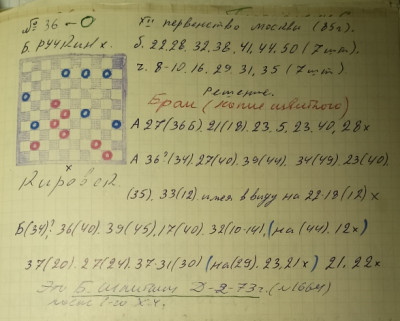 № 36 – О
VII первенство Москвы (85г.)
Б. Ручкин х.
б. 22.28.32.38.41.44.50 (7шт.)
ч. 8-10.16.29.31.35 (7шт.)
Решение.
Брак (копие )
А 27(36Б).21(18).23.5.23.40.28х
х
Кировск
А 36?(34).27(40).39(44). 34(49).23(40).
(35).33(12).имея в виду на 22-19(12)х
Б(34)? 36(40).39(45).17(40).32(10-14).(на(44).12х)
37(20).27(24).37-31(30)(на(29).23.21х) 21.22х
Это Б. Шпитальн Д-2-73г. (№1664)
после 1-го х.ч.